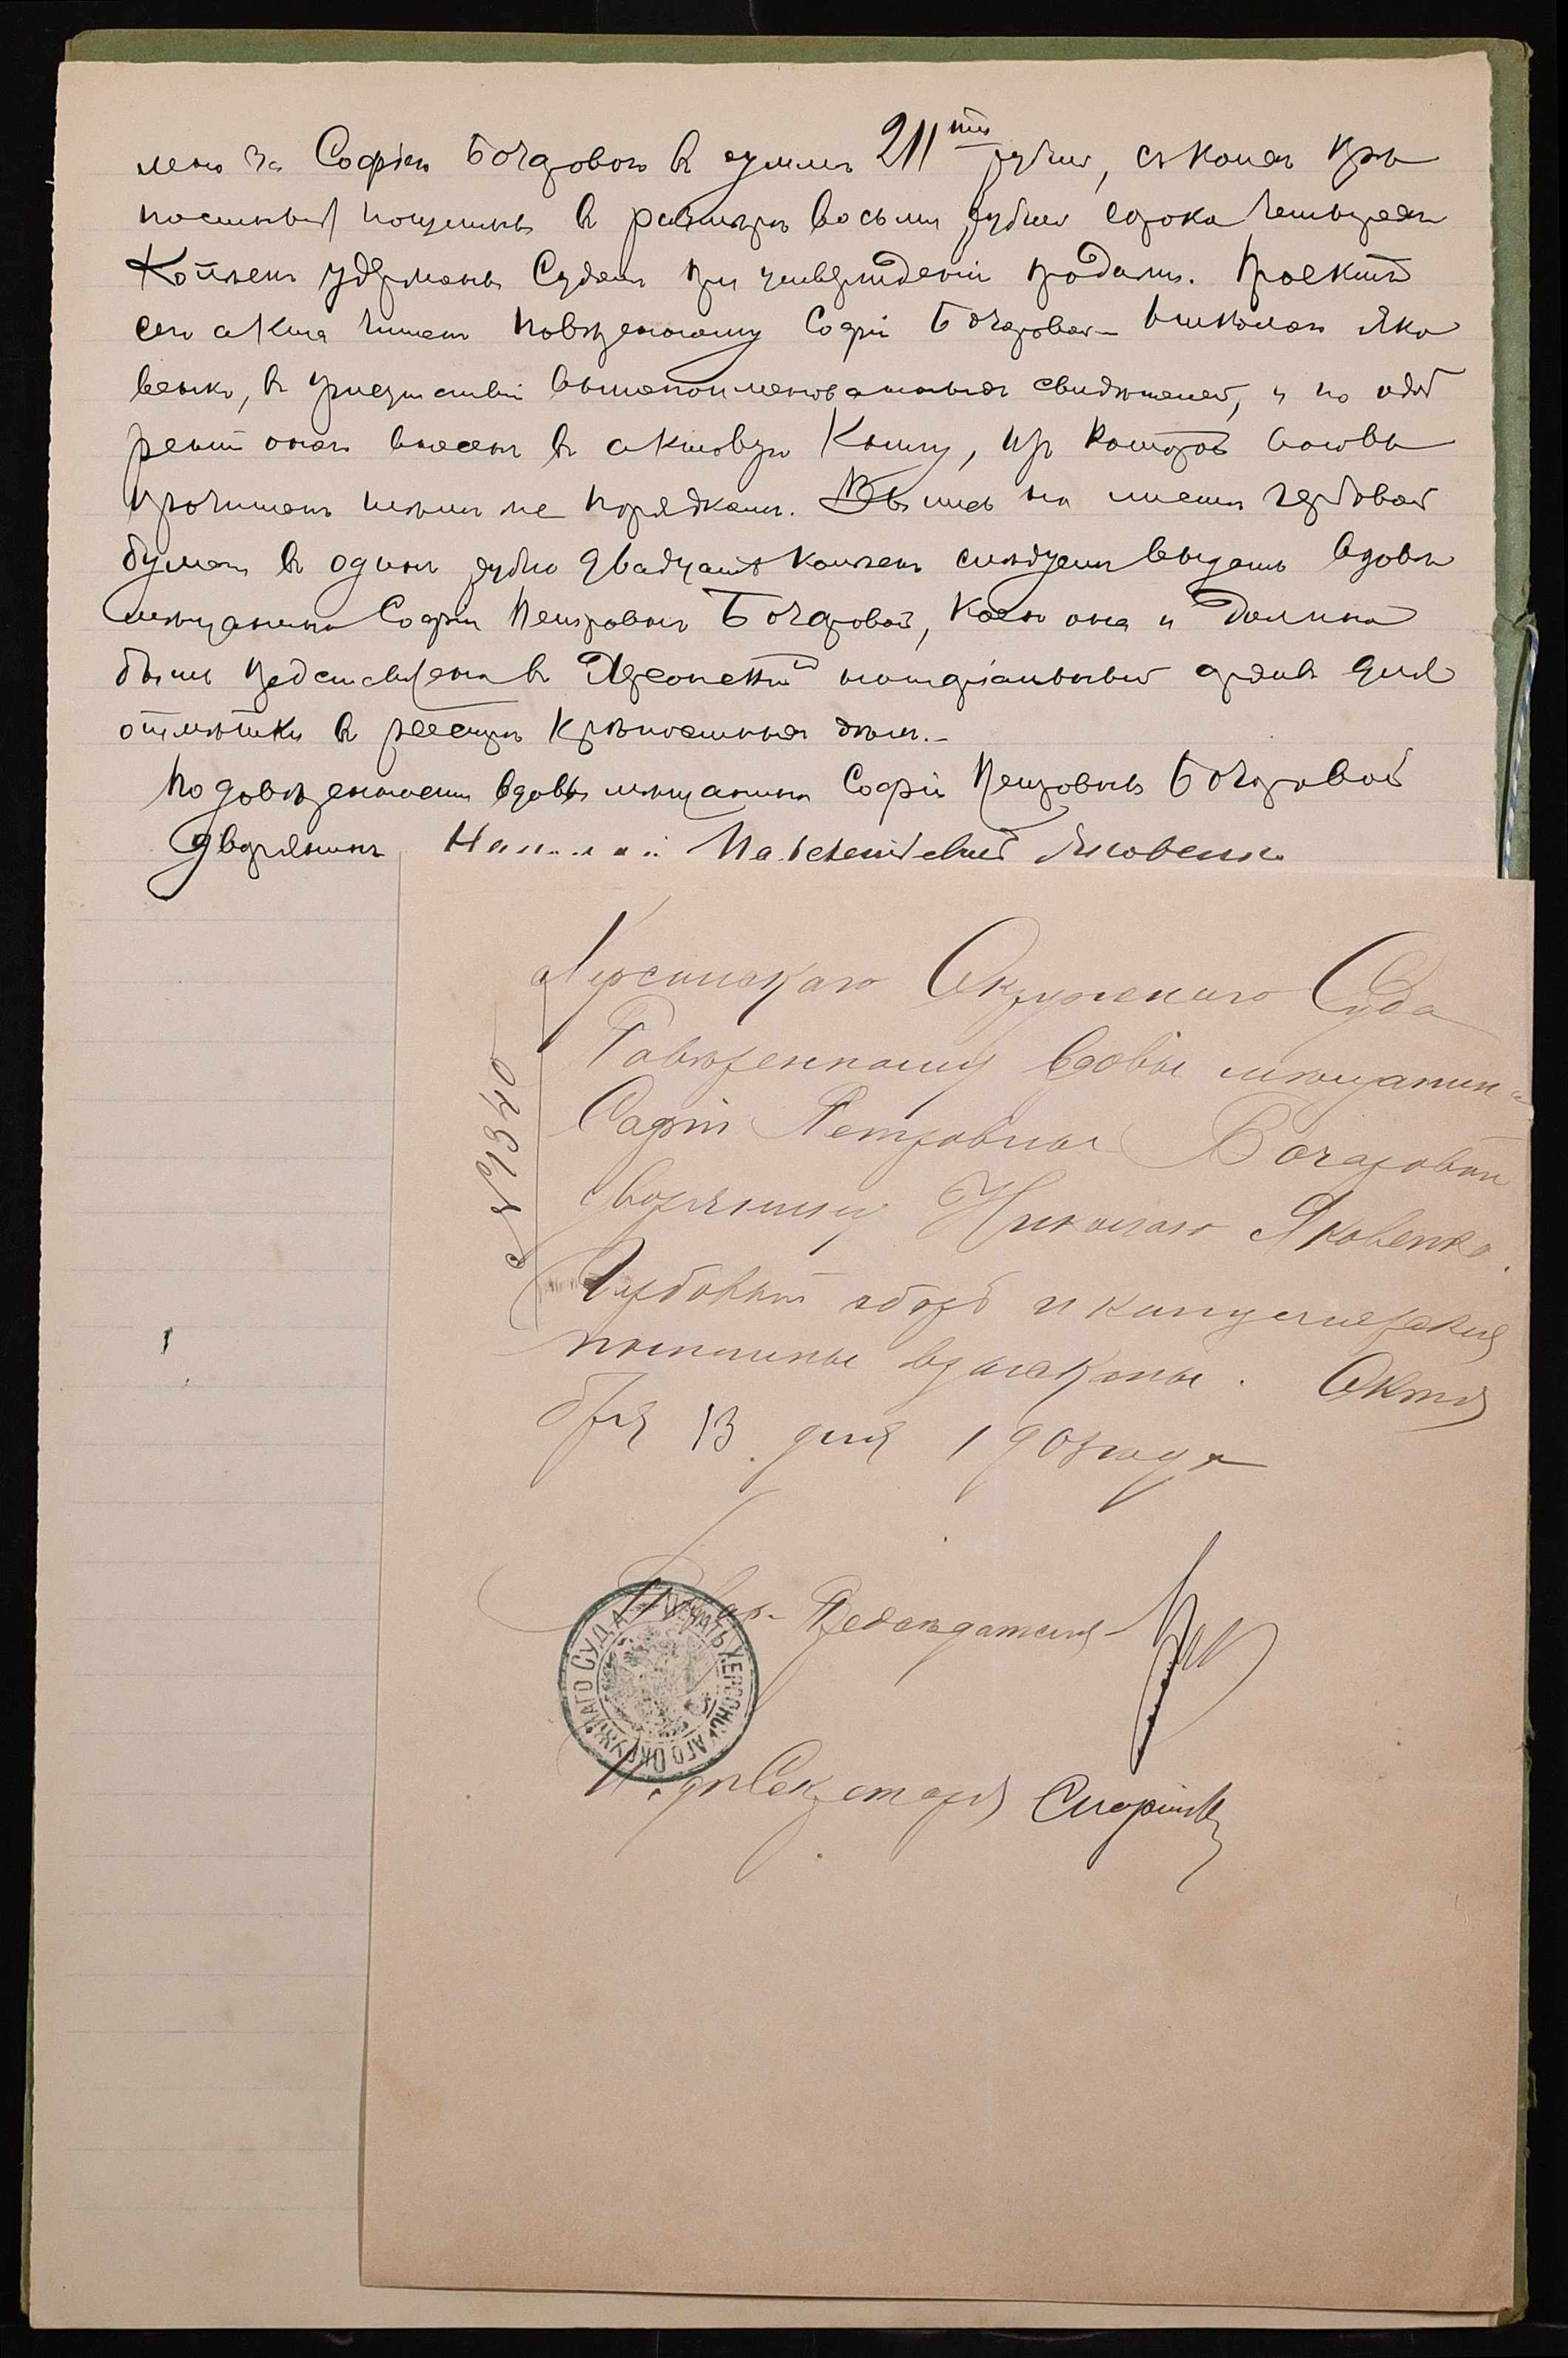 лено за Софіею Бочаровою въ суммѣ 211ти рублей, съ коихъ крѣ
постныхъ пошлинъ въ размѣрѣ восьми рублей сорока четырехъ
Копѣекъ удержаны Судомъ при утвержденіи продажи. Проектъ
сего акта читанъ повѣренному Софіи Бочаровой Николаю Яко
венко, въ присутствіи вышепоименованныхъ свидѣтелей, и по одоб
реніи онаго внесенъ въ актовую Книгу, изъ которой вновь
прочитанъ тѣмъ же порядкомъ. Выпись на листѣ гербовой
бумаги въ одинъ рубль двадцать копѣекъ слѣдуетъ выдать вдовѣ
мѣщанина Софіи Петровнѣ Бочаровой, коею она и должна
быть представлена въ Херсонскій нотаріальный архивъ для
отмѣтки въ реестрѣ крѣпостныхъ дѣлъ.-
По довѣренности вдовы мѣщанина Софіи Петровны Бочаровой
дворянинъ Николай Яковенко
Херсонскаго Окружнаго Суда
Повѣренному вдовы мѣщанина
Софіи Петровны Бочаровой
дворянину Николаю Яковенко.
№ 1340
Гербовый сборъ и канцелярскія
пошлины взысканы. Октя
бря 13 дня 190 года
Товар. Предсѣдателя
ПЕЧАТЬ ХЕРСОНСКАГО ОКРУЖНАГО СУДА
И. д. Секретаря